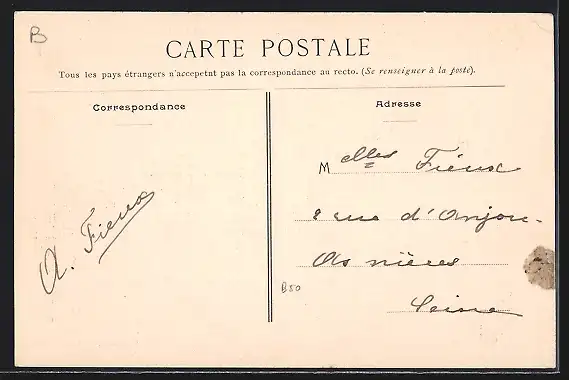 B
CARTE POSTALE
Tous les pays étrangers n'accepetnt pas la correspondance au recto. (Se renseigner à la poste).
Correspondance
Adresse
Melles Fieux
8 rue d'Anjou-
Asnières
Seine
A. Fieux
B50